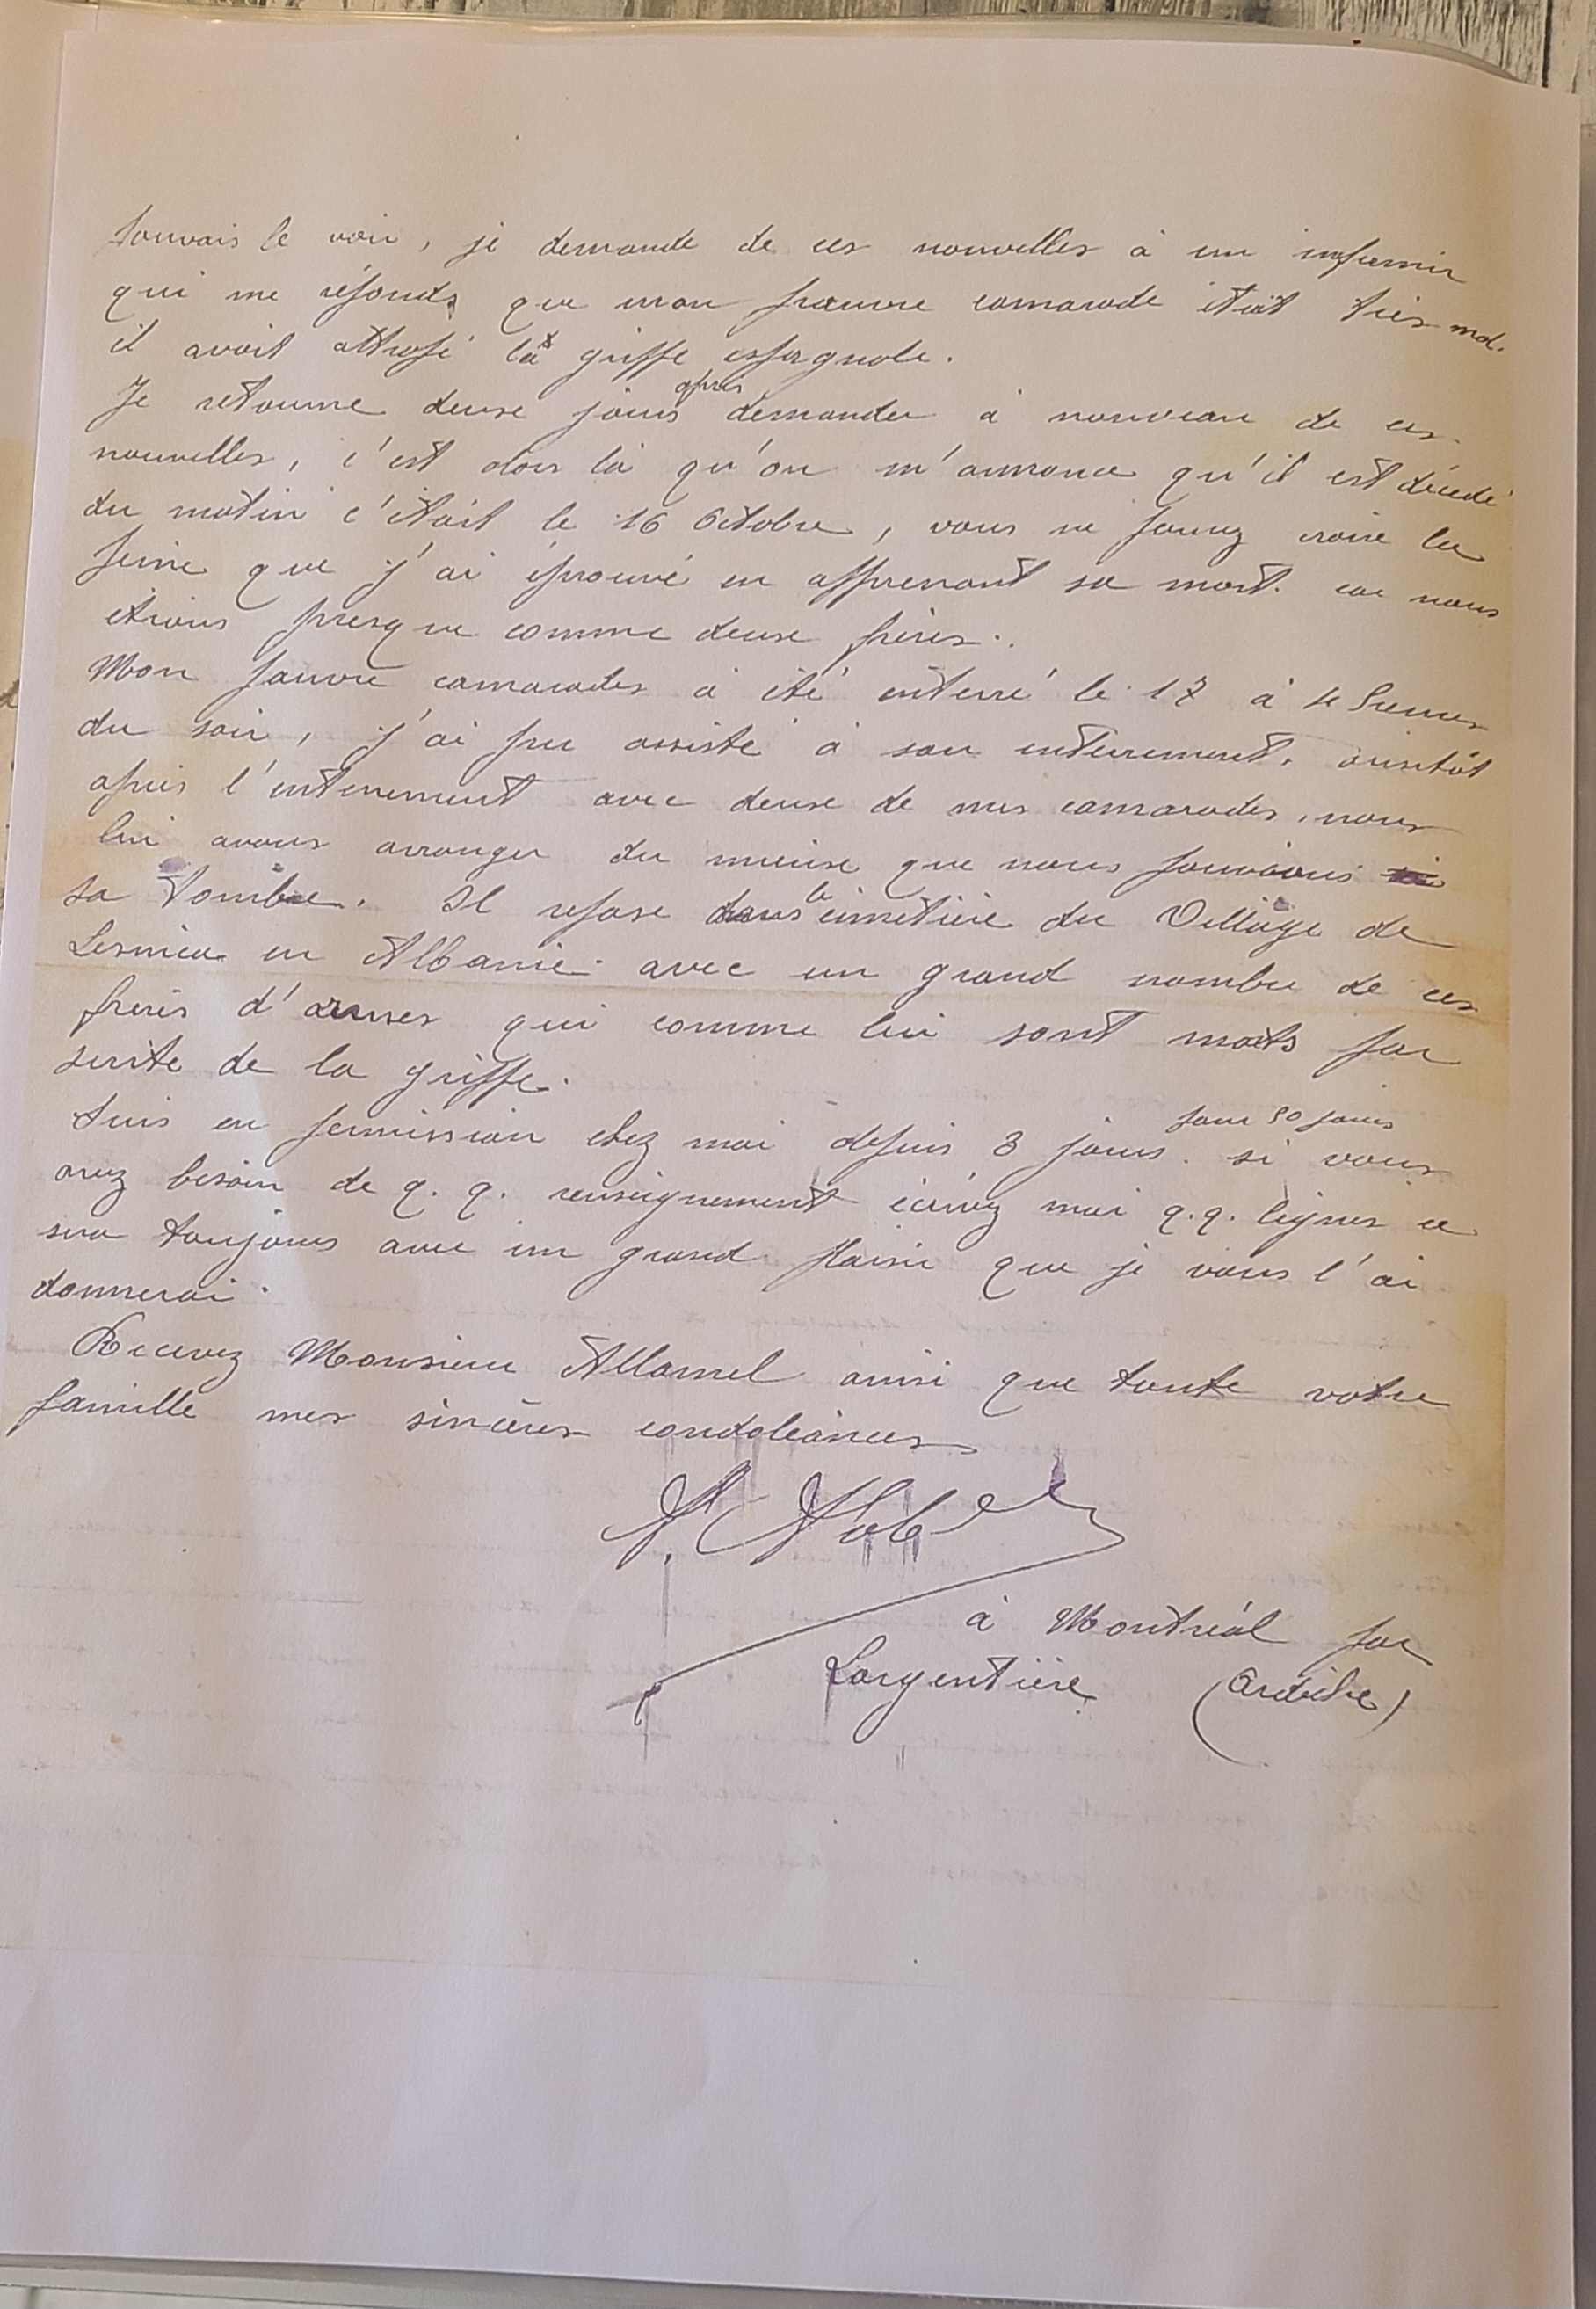 pouvais le voir, je demande de ces nouvelles à un infirmir
qui me réponds que mon pauvre camarade était très mal.
il avait attrapé la griffe espagnole.
Je retourne deuse jours après demander à nouveau de ces
nouvelles, c'est alors là qu'on m'annonce qu'il est décédé
du matin c'était le 16 Octobre, vous ne pouvez croire la
peine que j'ai éprouvé en apprenant sa mort. car nous
étions presque comme deuse frères.
Mon pauvre camarades à été enterré le 17 à 4 heures
du soir, j'ai pu assisté à son enterrement, aussitôt
après l'enterrement avec deuse de mes camarades, nous
lui avons arranger du mieuse que nous pouvions
sa tombe. Il repose dans le cimetière du Village de
Lesnica en Albanie avec un grand nombre de ces
frères d'armes qui comme lui sont morts par
suite de la griffe.
Suis en permission chez moi depuis 3 jours pour 30 jours. si vous
avez besoin de q. q. renseignement écrivez moi q.q. lignes ce
sera toujours avec un grand plaisir que je vous l'ai
donnerai.
Recevez Monsieur Allamel ainsi que toute votre
famille mes sincères condoléances
à Montréal par
Largentière (Ardèche)